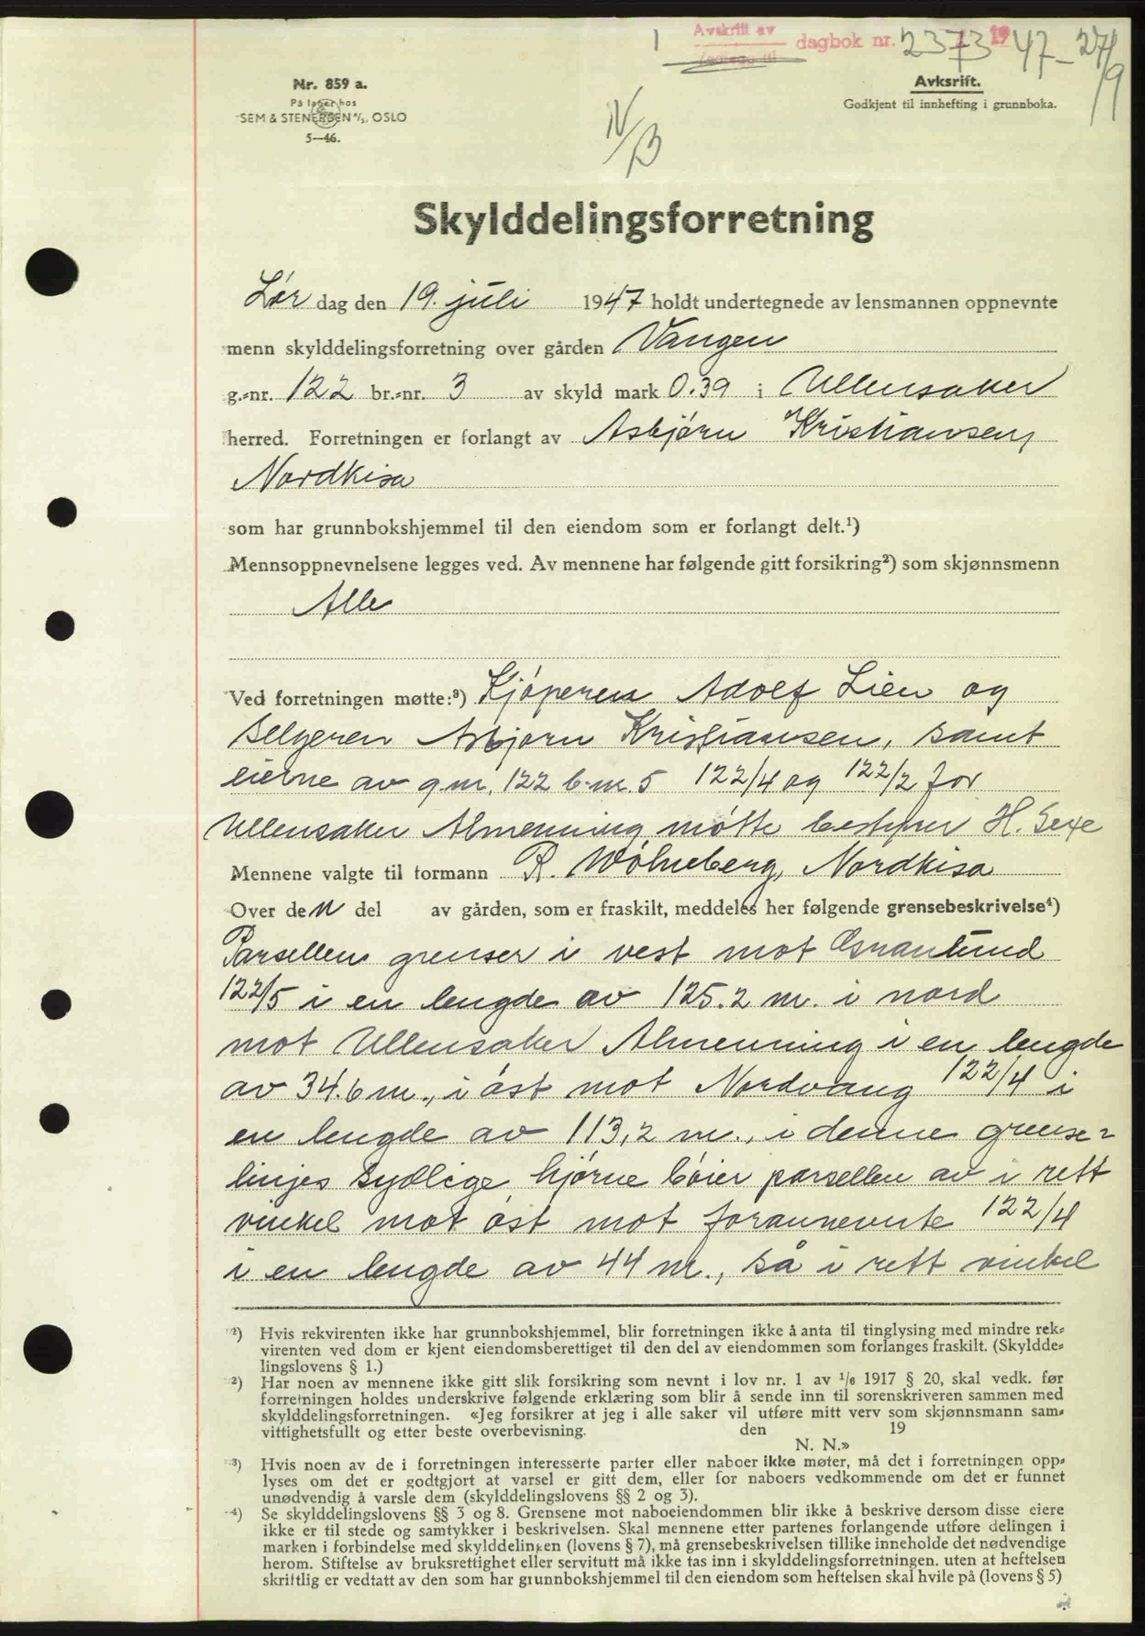 1 Avskrift av dagbok nr. 2373 1947-27/9
Nr. 859 a.
På lager hos
SEM & STENERSEN A/S, OSLO
5-46.
Avksrift.
Godkjent til innhefting i grunnboka.
IV/B
Skylddelingsforretning
Lør dag den 19. juli 1947 holdt undertegnede av lensmannen oppnevnte
menn skylddelingsforretning over gården Vangen
g.-nr. 122 br.-nr. 3 av skyld mark 0.39 i Ullensaker
herred. Forretningen er forlangt av Asbjørn Kristiansen,
Nordkisa
som har grunnbokshjemmel til den eiendom som er forlangt delt.¹)
Mennsoppnevnelsene legges ved. Av mennene har følgende gitt forsikring²) som skjønnsmenn
Alle
Ved forretningen møtte:³) Kjøperen Adolf Lien og
selgeren Asbjørn Kristiansen, samt
eierne av g.nr. 122 b.nr. 5 122/4 og 122/2 for
Ullensaker Almenning møtte bestyrer H. Sexe
Mennene valgte til formann R. Wølneberg, Nordkisa
Over den del av gården, som er fraskilt, meddeles her følgende grensebeskrivelse⁴)
Parsellen grenser i vest mot
122/5 i en lengde av 125.2 m. i nord
mot Ullensaker Almenning i en lengde
av 34.6 m., i øst mot Nordvang 122/4 i
en lengde av 113,2 m., i denne grense-
linjes sydlige hjørne bøier parsellen av i rett
vinkel mot øst mot forannevnte 122/4
i en lengde av 44 m., så i rett vinkel
¹) Hvis rekvirenten ikke har grunnbokshjemmel, blir forretningen ikke å anta til tinglysing med mindre rek-
virenten ved dom er kjent eiendomsberettiget til den del av eiendommen som forlanges fraskilt. (Skyldde-
lingslovens § 1.)
²) Har noen av mennene ikke gitt slik forsikring som nevnt i lov nr. 1 av 1/6 1917 § 20, skal vedk. før
forretningen holdes underskrive følgende erklæring som blir å sende inn til sorenskriveren sammen med
skylddelingsforretningen. «Jeg forsikrer at jeg i alle saker vil utføre mitt verv som skjønnsmann sam-
vittighetsfullt og etter beste overbevisning. den 19
N. N.»
³) Hvis noen av de i forretningen interesserte parter eller naboer ikke møter, må det i forretningen opp-
lyses om det er godtgjort at varsel er gitt dem, eller for naboers vedkommende om det er funnet
unødvendig å varsle dem (skylddelingslovens §§ 2 og 3).
⁴) Se skylddelingslovens §§ 3 og 8. Grensene mot naboeiendommen blir ikke å beskrive dersom disse eiere
ikke er til stede og samtykker i beskrivelsen. Skal mennene etter partenes forlangende utføre delingen i
marken i forbindelse med skylddelingen (lovens § 7), må grensebeskrivelsen tillike inneholde det nødvendige
herom. Stiftelse av bruksrettighet eller servitutt må ikke tas inn i skylddelingsforretningen. uten at heftelsen
skriftlig er vedtatt av den som har grunnbokshjemmel til den eiendom som heftelsen skal hvile på (lovens § 5)